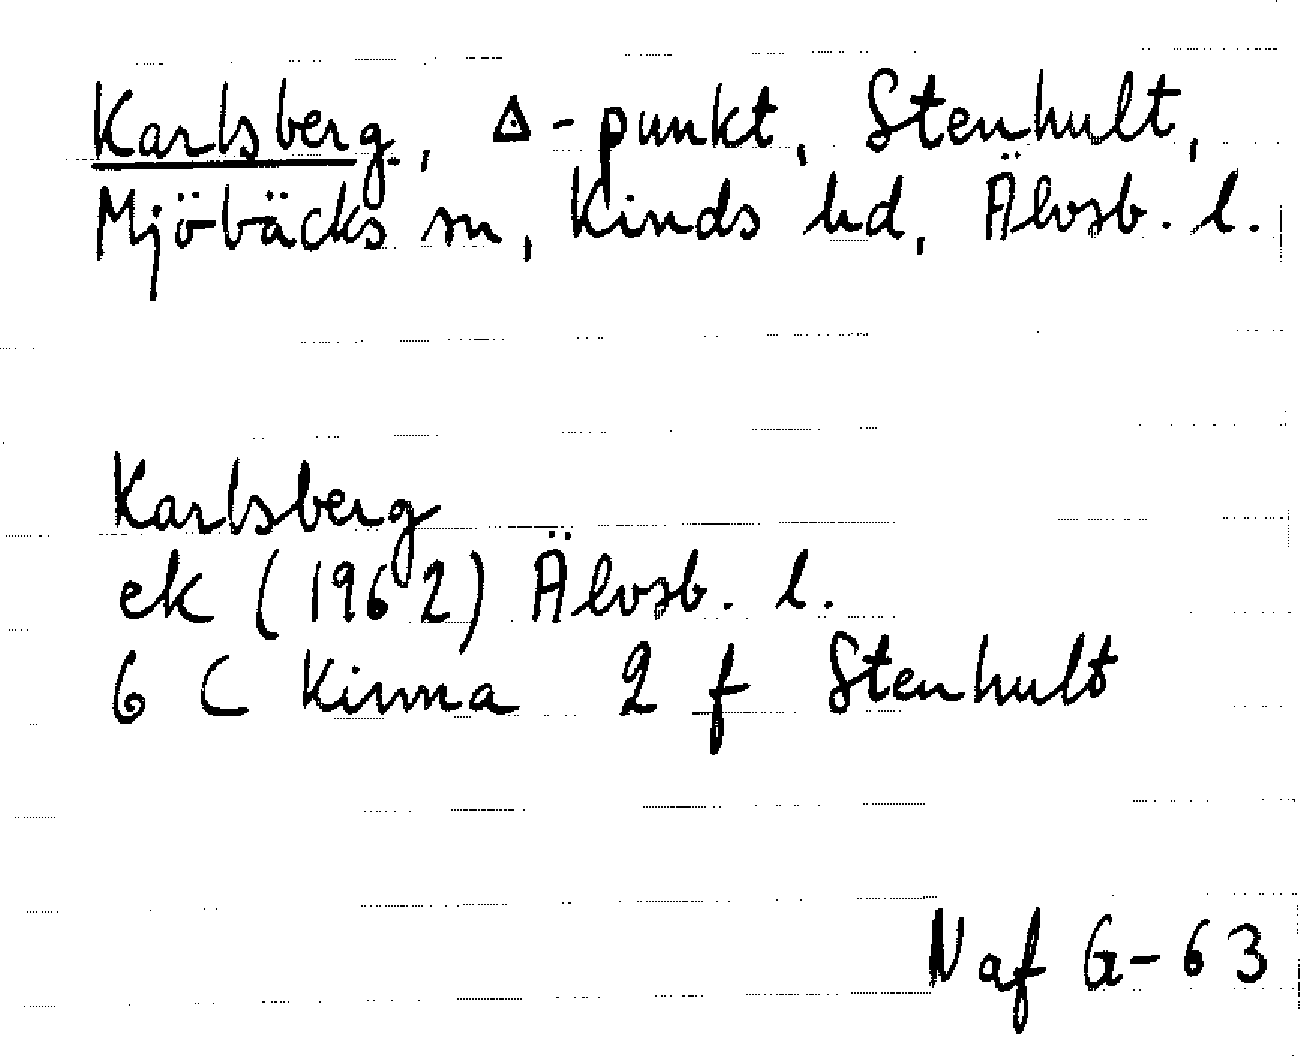 Karlsberg, △-punkt, Stenhult,
Mjöbäcks sn, Kinds hd, Älvsb. l.
Karlsberg
ek (1962) Älvsb. l.
6 C Kinna 2 f Stenhult
N af G-63